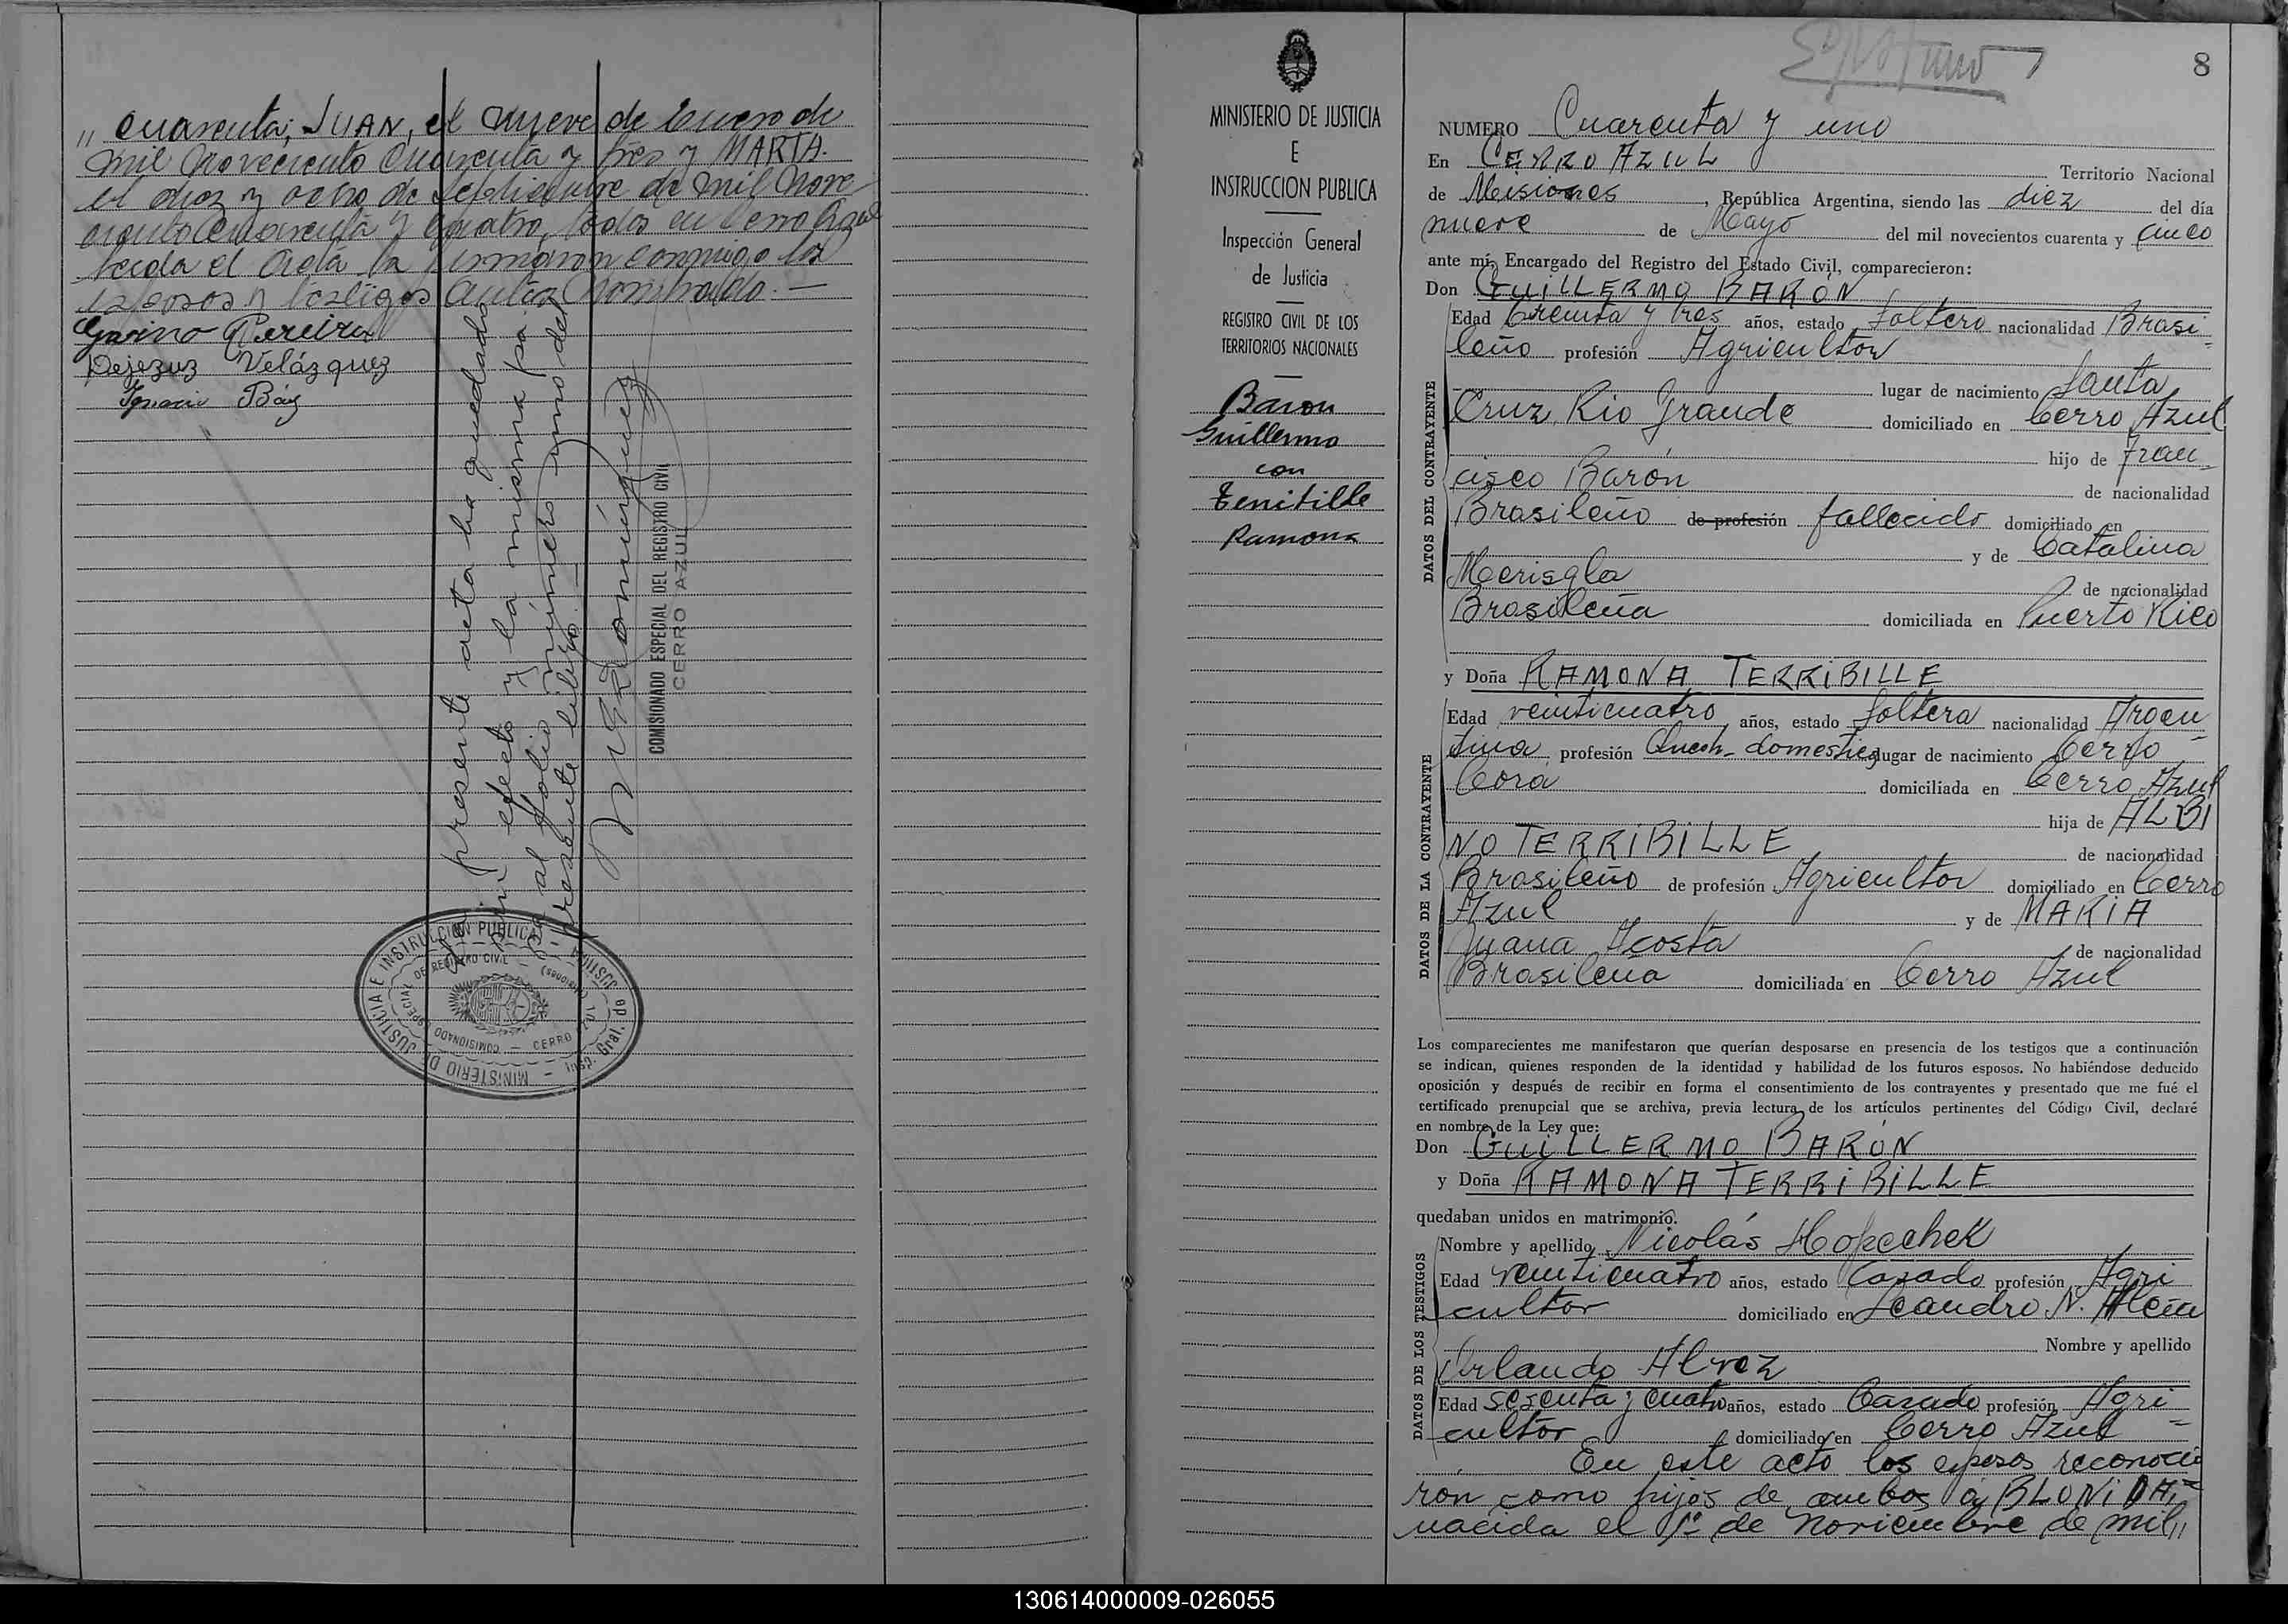 „ cuarenta; JUAN, el nueve de Enero de
mil novecientos cuarenta y tres y MARTA.
el diez y ocho de Septiembre de mil nove
cientos cuarenta y cuatro, todos en Cerro Azul
leída el Acta la firmaron conmigo los
esposos y testigos antes nombrados.—
Garino Pereira
Dejezuz Velázquez
Ignacio Báy
La presente acta ha quedado
sin efecto y la misma pa
sa al folio número uno del
presente libro.—
COMISIONADO ESPECIAL DEL REGISTRO CIVIL
CERRO AZUL
MINISTERIO DE JUSTICIA E INSTRUCCION PUBLICA
Insp. Gral. de JUSTICIA
COMISIONADO ESPECIAL DE REGISTRO CIVIL
CERRO AZUL (Misiones)
MINISTERIO DE JUSTICIA
E
INSTRUCCION PUBLICA
Inspección General
de Justicia
REGISTRO CIVIL DE LOS
TERRITORIOS NACIONALES
Baron
Guillermo
con
Ramona
8
NUMERO Cuarenta y uno
En CERRO AZUL Territorio Nacional
de Misiones, República Argentina, siendo las diez del día
nueve de Mayo del mil novecientos cuarenta y cinco
ante mí, Encargado del Registro del Estado Civil, comparecieron:
Don GUILLERMO BARON
DATOS DEL CONTRAYENTE
Edad treinta y tres años, estado Soltero nacionalidad Brasi
leño profesión Agricultor
lugar de nacimiento Santa
Cruz, Rio Grande domiciliado en Cerro Azul
hijo de Fran
cisco Barón de nacionalidad
Brasileño de profesión fallecido domiciliado en
y de Catalina
Merisgla de nacionalidad
Brasileña domiciliada en Puerto Rico
y Doña RAMONA TERRIBILLE
DATOS DE LA CONTRAYENTE
Edad veinticuatro años, estado Soltera nacionalidad Argen
tina profesión Queh- domestico lugar de nacimiento Cerro
Cora domiciliada en Cerro Azul
hija de ALBI
NO TERRIBILLE de nacionalidad
Brasileño de profesión Agricultor domiciliado en Cerro
Azul y de MARIA
Juana Acosta de nacionalidad
Brasileña domiciliada en Cerro Azul
Los comparecientes me manifestaron que querían desposarse en presencia de los testigos que a continuación
se indican, quienes responden de la identidad y habilidad de los futuros esposos. No habiéndose deducido
oposición y después de recibir en forma el consentimiento de los contrayentes y presentado que me fué el
certificado prenupcial que se archiva, previa lectura de los artículos pertinentes del Código Civil, declaré
en nombre de la Ley que:
Don GUILLERMO BARÓN
y Doña RAMONA TERRIBILLE
quedaban unidos en matrimonio.
DATOS DE LOS TESTIGOS
Nombre y apellido Nicolás Hopechek
Edad veinticuatro años, estado Casado profesión Agri
cultor domiciliado en Leandro N. Alem
Nombre y apellido
Orlando Alvez
Edad sesenta y cuatro años, estado Casado profesión Agri
cultor domiciliado en Cerro Azul
En este acto los esposos reconocie
ron como hijos de ambos a BLONIDA,
nacida el 1º de Noviembre de mil„
130614000009-026055